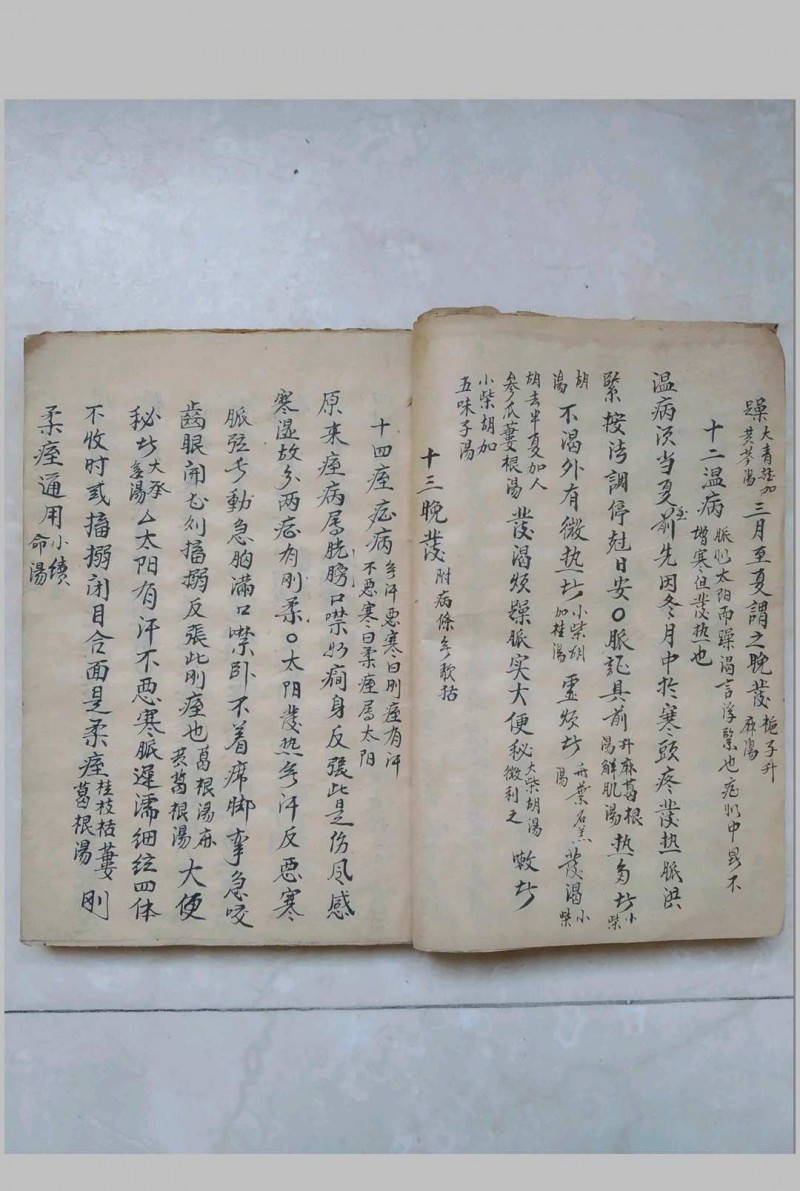 躁大青龙加黄芩湯三月至夏謂之晚發栀子升麻湯
十二温病脈似太阳而躁渴言浮緊也症似中暑不增寒但發热也
温病须当夏至前先因冬月中於寒頭疼發热脈洪
緊按法調停尅日安〇脈証具前升麻葛根湯解肌湯热多者小柴
胡湯不渴外有微热者小柴胡加桂湯虚烦者竹葉石羔湯發渴小柴
胡去半夏加人參瓜蔞根湯發渴烦躁脈实大便秘大柴胡湯微利之嗽者
小柴胡加五味子湯
十三晚發附病條無歌括
十四痓症病無汗惡寒曰刚痓有汗不惡寒曰柔痓属太阳
原来痓病属膀胱口噤如癎身反張此是伤风感
寒湿故分两症有刚柔〇太阳發热無汗反惡寒
脈弦长動急胸滿口噤卧不着席脚挛急咬
齒眼開甚则搐搦反張此刚痓也葛根湯麻黄葛根湯大便
秘者大承氣湯△太阳有汗不惡寒脈遲濡细纭四体
不收时或搐搦闭目合面是柔痓桂枝栝蔞葛根湯刚
柔痓通用小續命湯